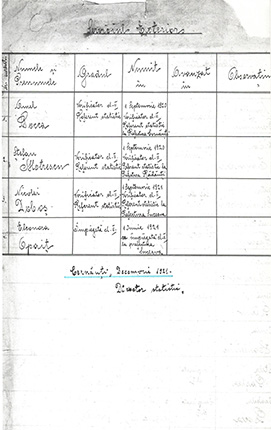 Serviciul Exterior
Numele și Prenumele
Gradul
Numit în
Avansat în
Observațiuni
1.
Aurel
Verificator cl. I, Referent statistic
1 Septemvrie 1923 Verificator cl. I, Referent statistic la Prefectura
2.
Ștefan
Verificator cl. I, Referent statistic
1 Septemvrie 1923 Verificator cl. I, Referent statistic la Prefectura Rădăuți
3.
Nicolai
Zeboș
Verificator cl. I, Referent statistic
1 Septemvrie 1921 Verificator cl. I, Referent statistic la Prefectura Suceava
4.
Eleonora
Opaiț
Impiegată cl. I
1 Iunie 1921 ca impiegată cl. I la prefectura Suceava
Cernăuți, Decemvrie 192
Director statistic,